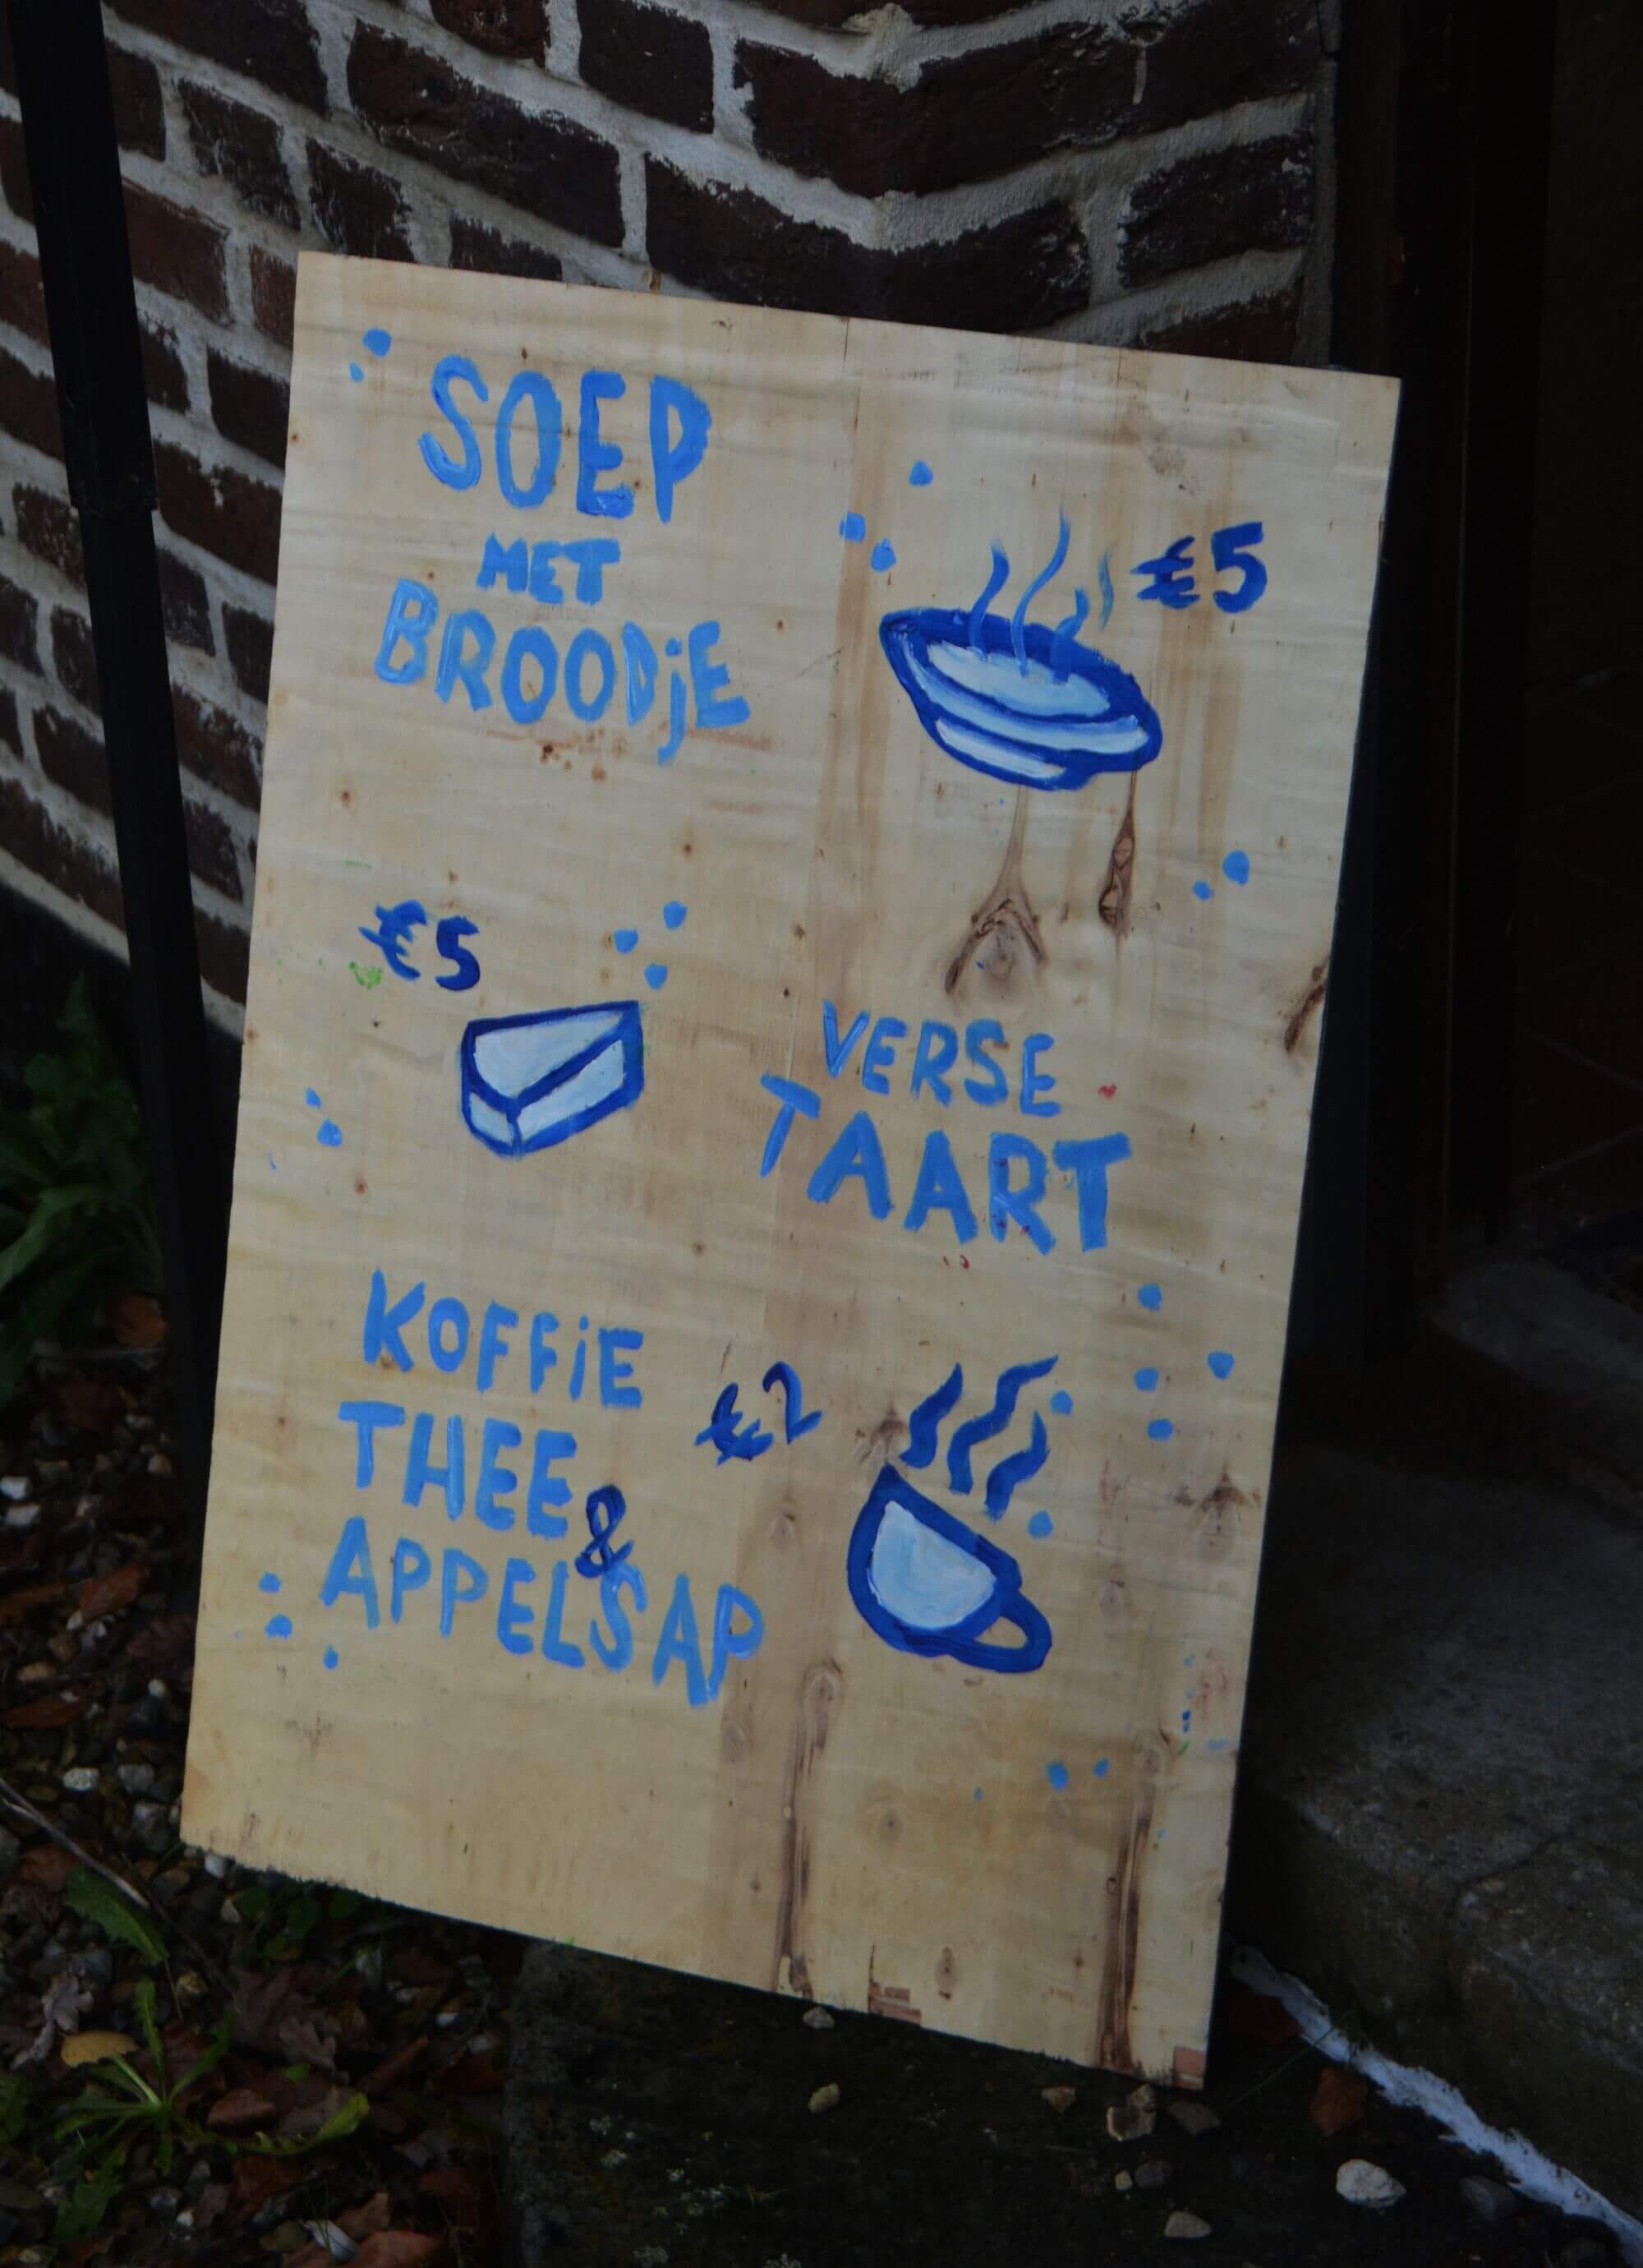 SOEP
MET
BROODjE
€5
€5
VERSE
TAART
KOFFiE
THEE
&
APPELSAP
€2